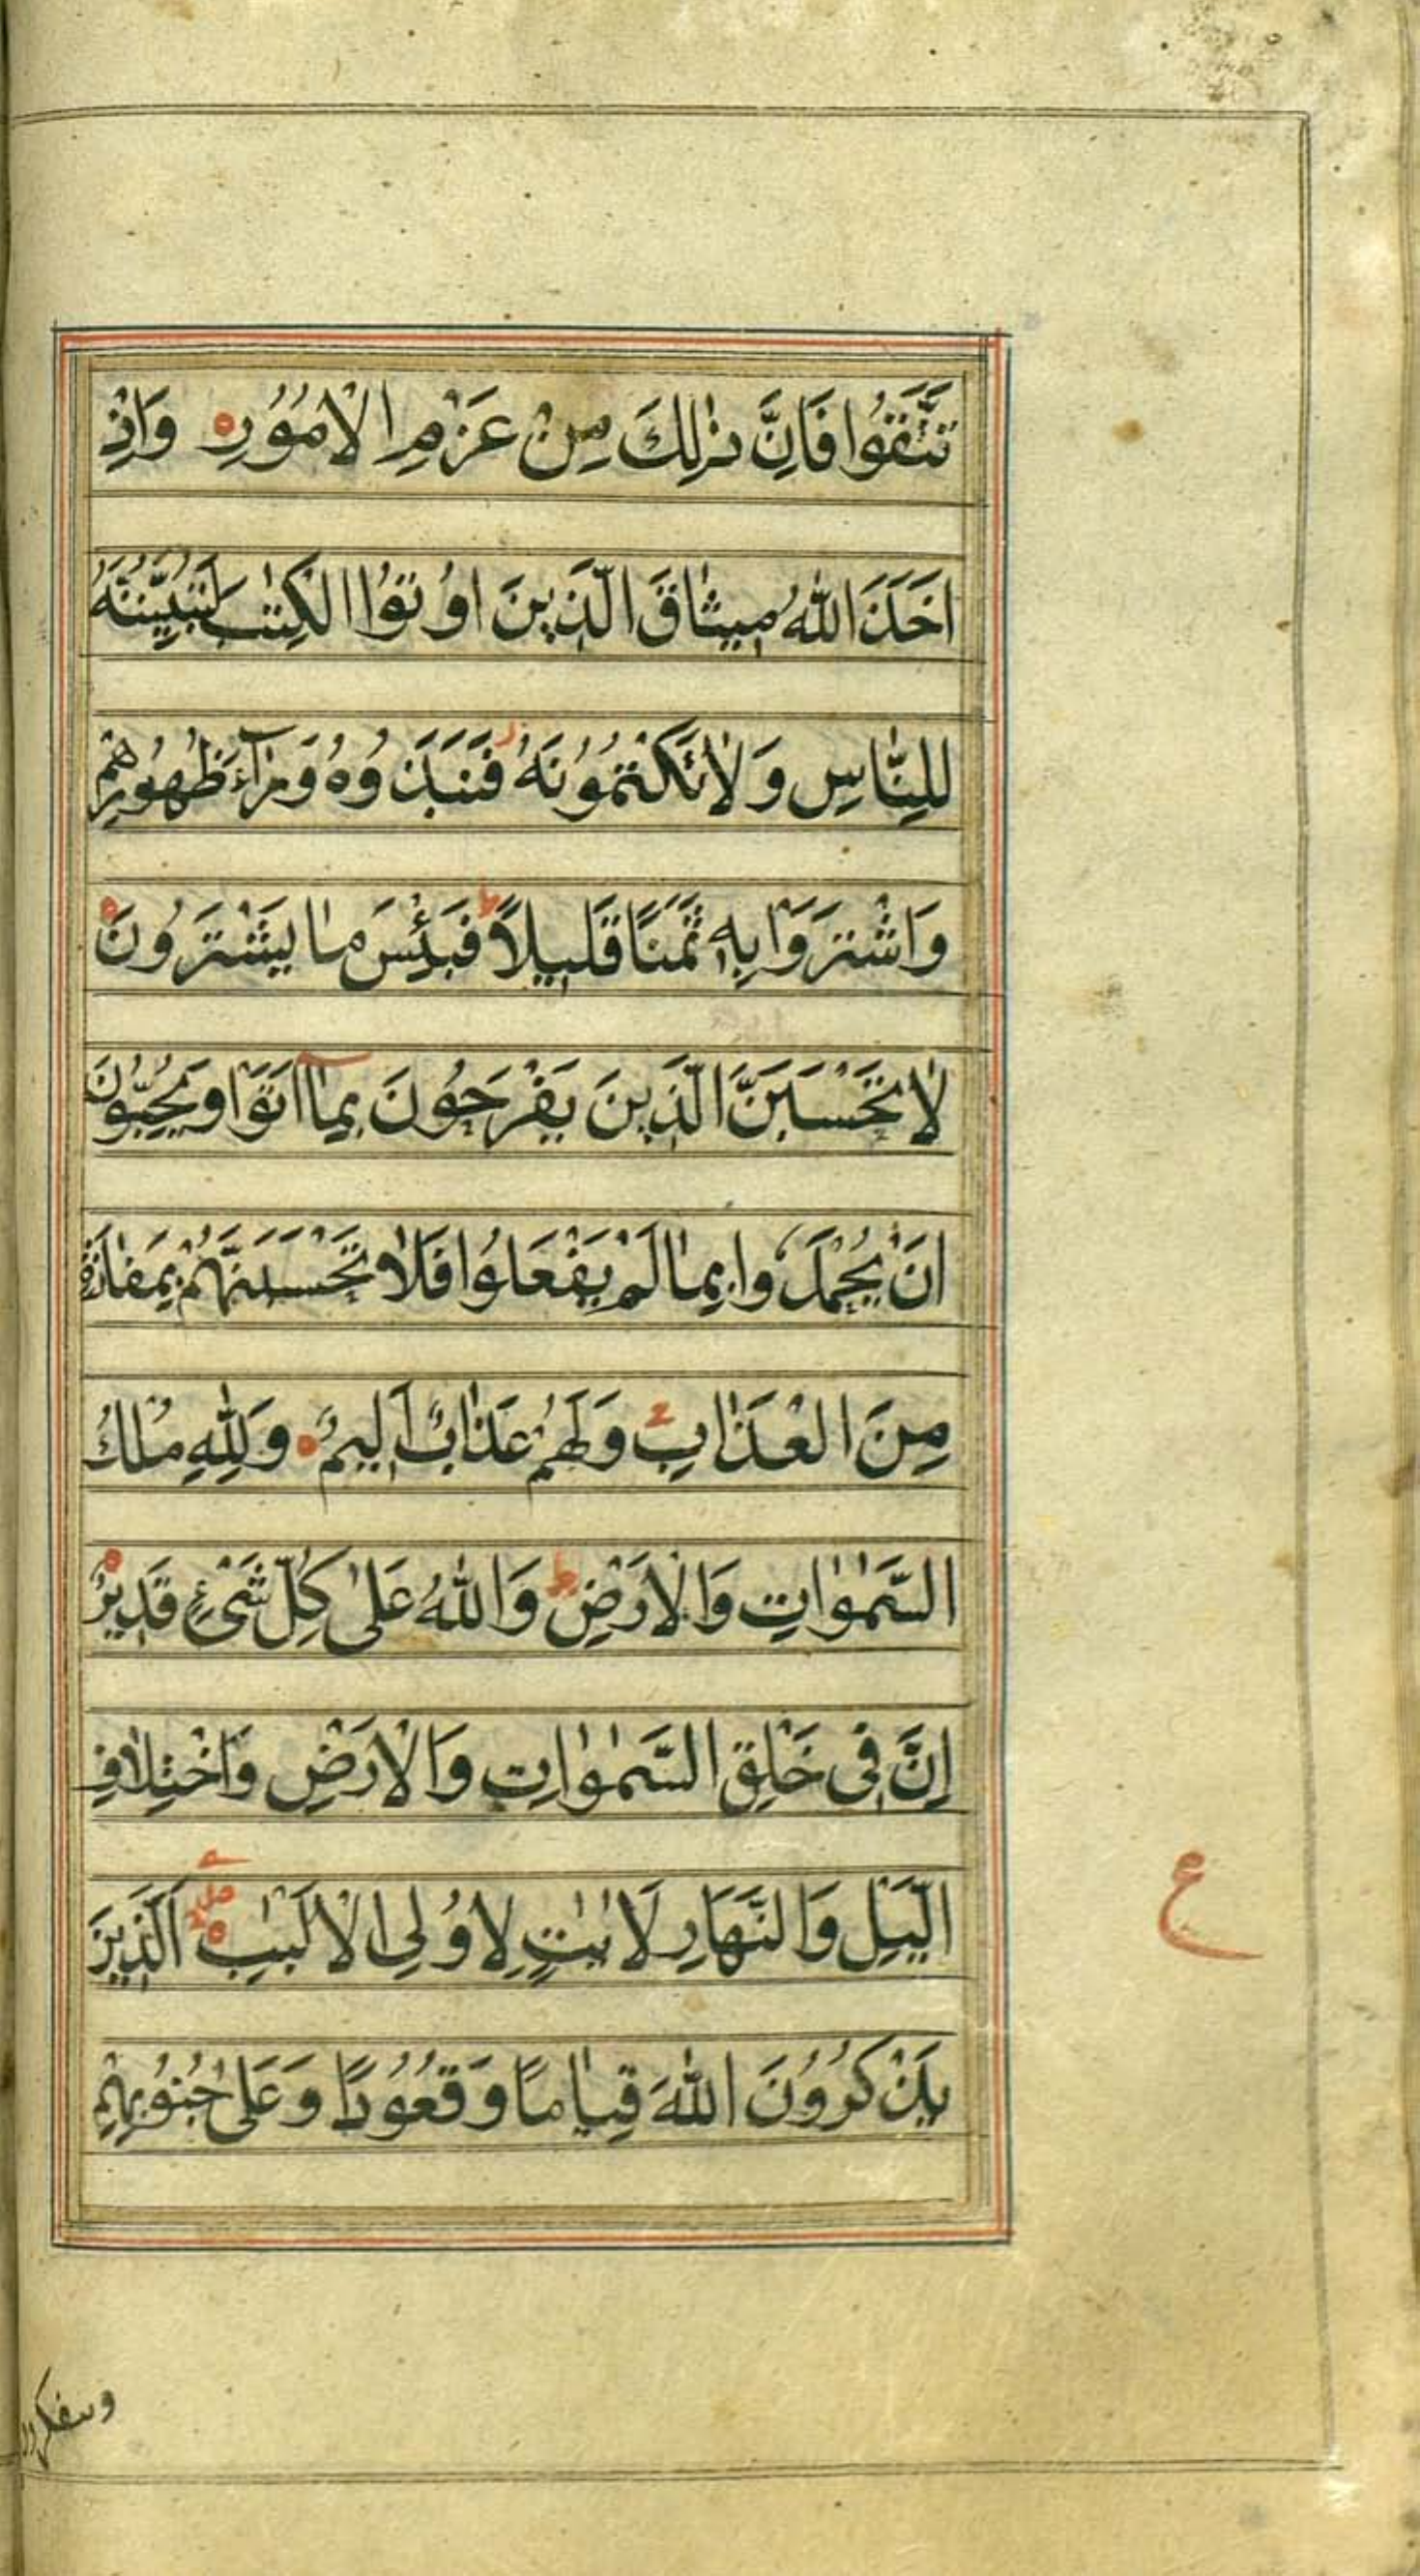 تَتَّقُوا فَاِنَّ ذٰلِكَ مِنْ عَزْمِ الْاُمُوُرِ وَاِذْ
اَخَذَ اللّٰهُ مِيثَاقَ الَّذِينَ اُوُتوُا الْكِتٰبَ لَتُبَيِّنُنَّهُ
لِلنَّاسِ وَلَاتَكْتُمُوُنَهُ فَنَبَذُوُهُ وَرَآءَ ظُهُوُرِهِمْ
وَاشْتَرَوْا بِهِ ثَمَنًا قَلِيلًا ط فَبِئْسَ مٰا يَشْتَرُونَ
لٰا تَحْسَبَنَّ الَّذِينَ يَفْرَحُونَ بِمٰآ اَتَوْا وَيُحِبُّونَ
اَنْ يُحْمَدُوا بِمٰا لَمْ يَفْعَلُوا فَلٰا تَحْسَبَنَّهُمْ بِمَفٰازَةٍ
مِنَ الْعَذٰابِ ج وَلَهُمْ عَذٰابٌ اَلِيمٌ وَلِلّٰهِ مُلْكُ
السَّمٰوٰاتِ وَالْاَرْضِ ط وَاللّٰهُ عَلٰى كُلِّ شَيْءٍ قَدِيرٌ
اِنَّ فِي خَلْقِ السَّمٰوٰاتِ وَالْاَرْضِ وَاخْتِلٰافِ
الَّيْلِ وَالنَّهَارِ لَاٰيٰتٍ لِاُولِي الْاَلْبٰبِ اَلَّذِينَ
ع
يَذْكُرُوُنَ اللّٰهَ قِيٰامًا وَقُعُوُدًا وَعَلٰى جُنُوُبِهِمْ
ويتفكرون